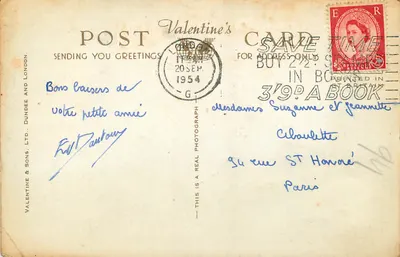 Valentine's
POST CARD
SENDING YOU GREETINGS
FOR ADDRESS ONLY
E R
LONDON
20 SEP
1954
G
SAVE TIME
BUY 2½D
IN BOOKS
3'9D A BOOK
Bons baisers de
votre petite amie
Mesdames Suzanne et Jeannette
Ciboulette
94 rue St Honoré
Paris
VALENTINE & SONS. LTD. DUNDEE AND LONDON
THIS IS A REAL PHOTOGRAPH